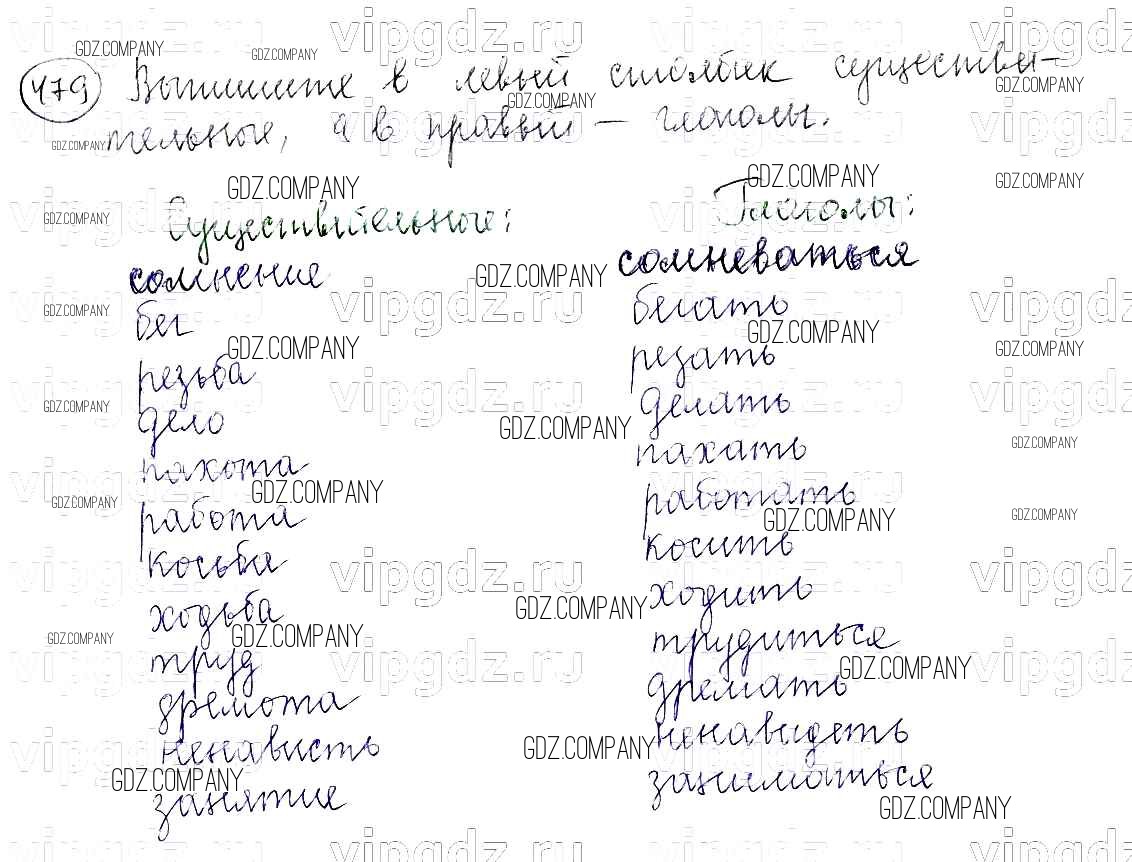 479 Выпишите в левый столбик существи-
тельные, а в правый – глаголы.
Существительные: Глаголы:
сомнение сомневаться
бег бегать
резьба резать
дело делать
пахота пахать
работа работать
косьба косить
ходьба ходить
труд трудиться
дремота дремать
ненависть ненавидеть
занятие заниматься